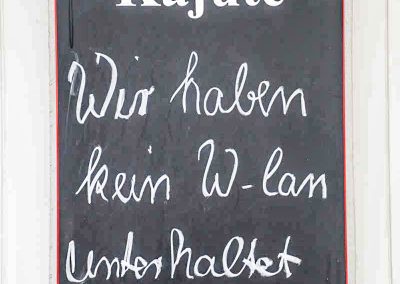 Kajüte
Wir haben
kein W-lan
unterhaltet